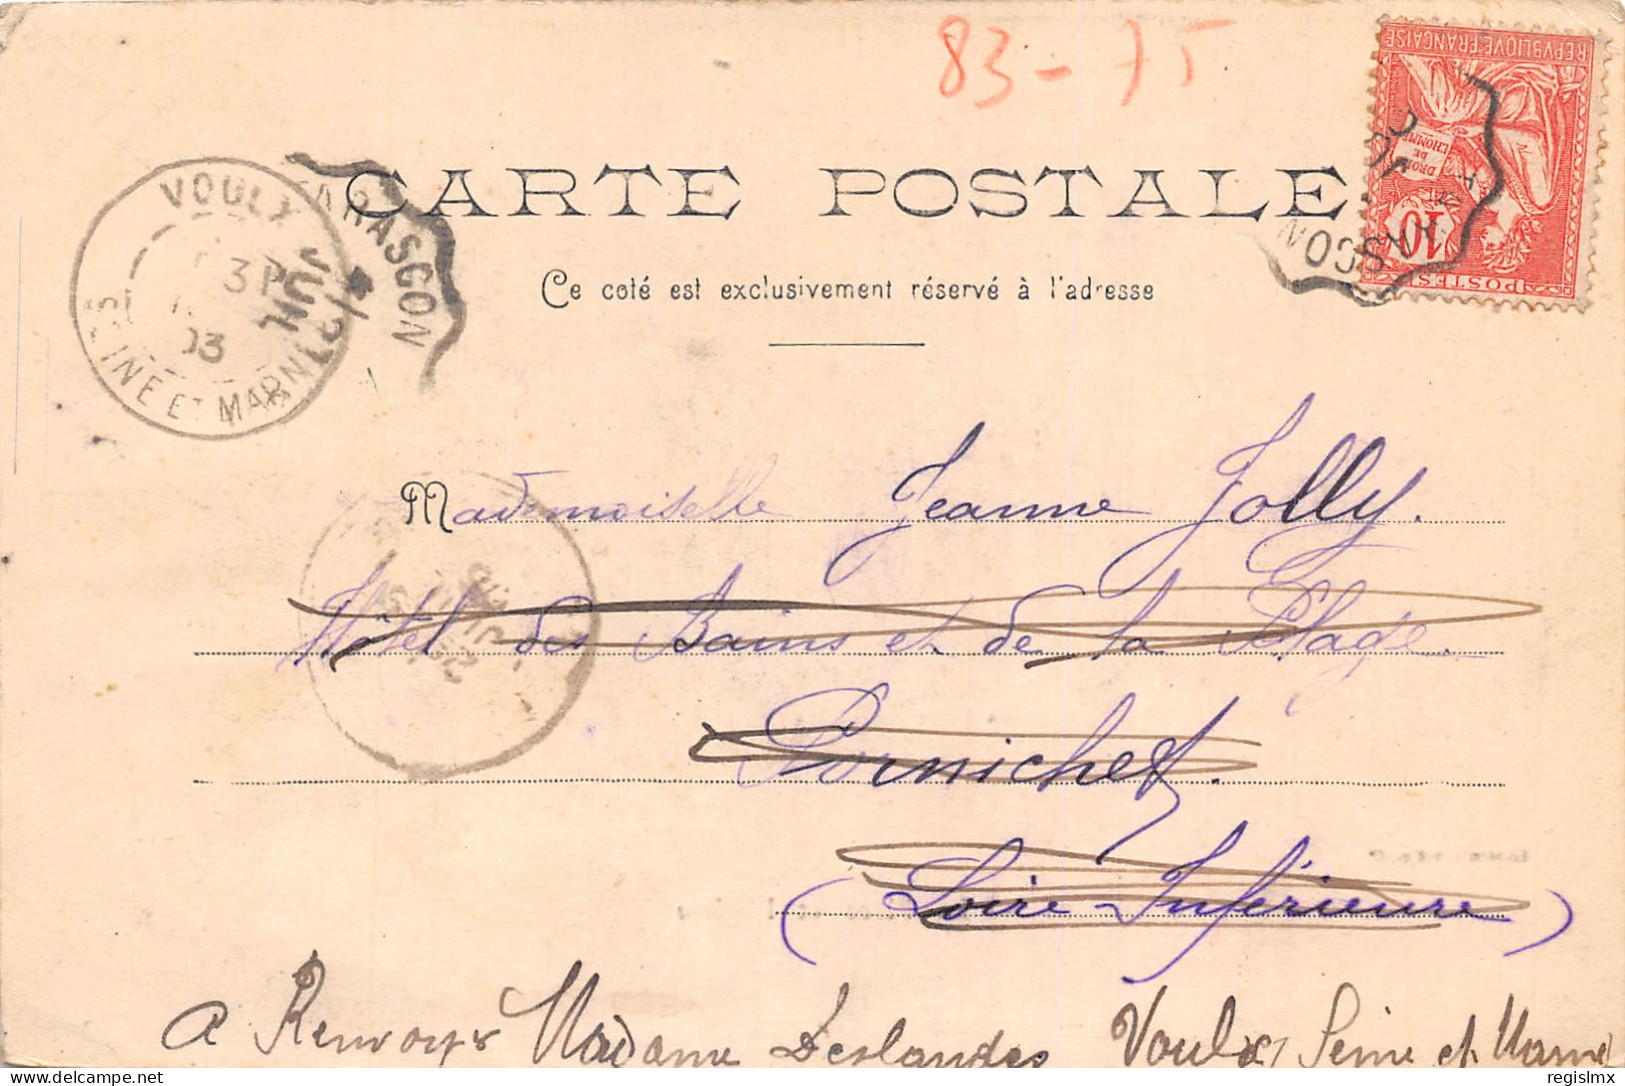 83-75
REPVBLIQVE FRANÇAISE
DROITS
DE
L'HOMME
10
POSTES
TARASCON
VOULX
SEINE ET MARNE
03
JUIL
CARTE POSTALE
Ce coté est exclusivement réservé à l'adresse
Mademoiselle Jeanne Jolly.
Hôtel des Bains et de la Plage.
Pornichet.
(Loire-Inférieure)
a Renvoyer Madame Deslandes Voulx Seine et Marne
delcampe.net
regislmx